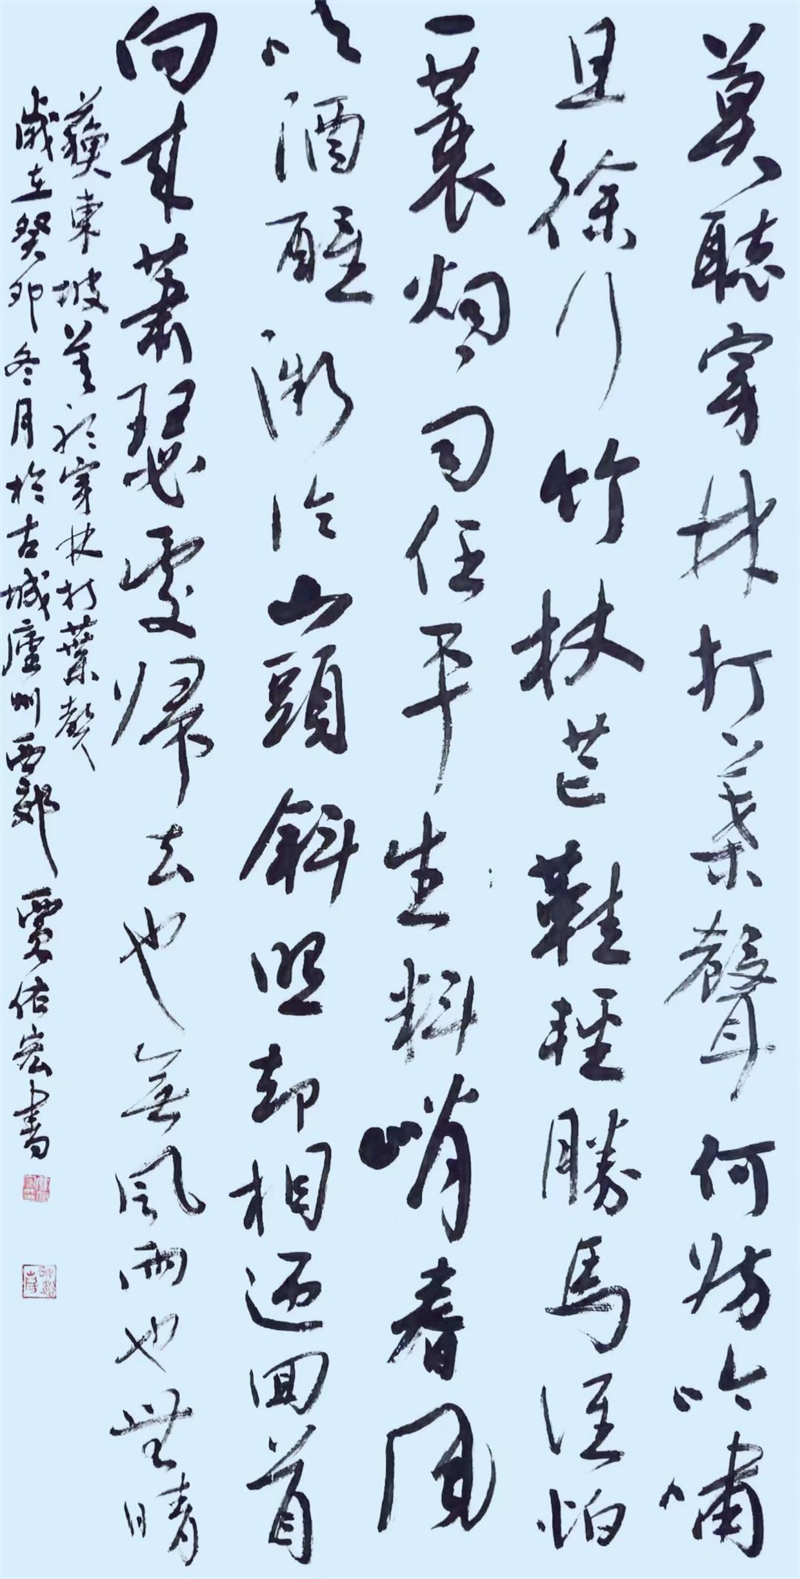 莫聽穿林打葉聲何妨吟嘯
且徐行竹杖芒鞋輕勝馬誰怕
一蓑烟雨任平生料峭春風
吹酒醒微冷山頭斜照却相迎回首
向来蕭瑟處歸去也無風雨也無晴
蘇東坡莫聽穿林打葉聲
歲在癸卯冬月於古城廬州西郊賈佑宏書